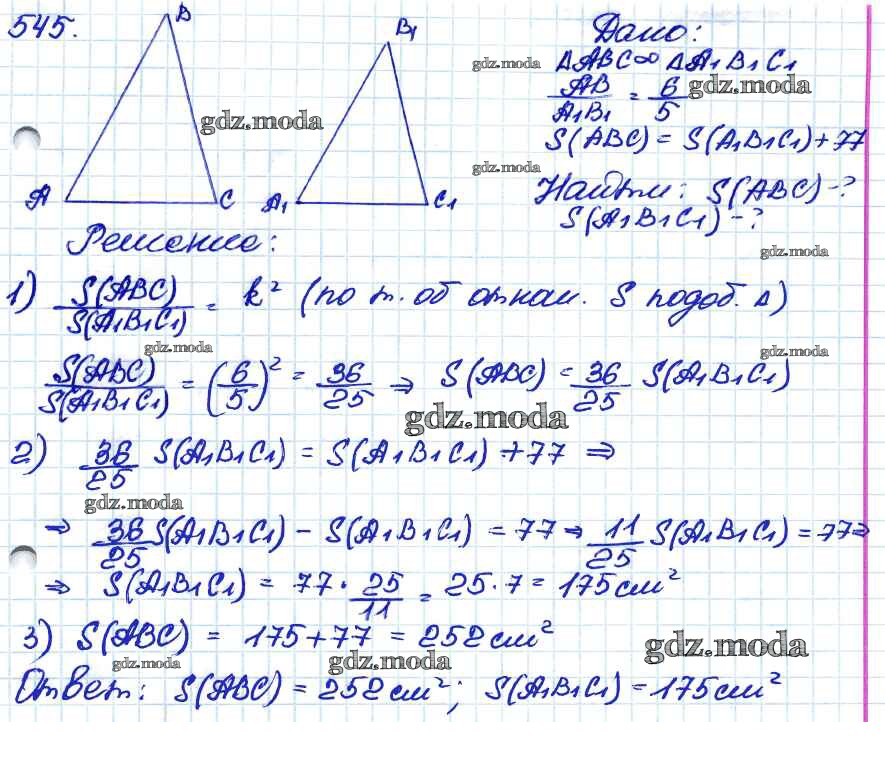 545.
B
B₁
A
C
A₁
C₁
Дано:
gdz.moda
ΔABC ∞ ΔA₁B₁C₁
gdz.moda
AB/A₁B₁ = 6/5 gdz.moda
S(ABC) = S(A₁B₁C₁)+77
gdz.moda
Найти: S(ABC)-?
S(A₁B₁C₁)-?
gdz.moda
Решение:
1) S(ABC)/S(A₁B₁C₁) = k² (по т. об отнош. S подоб. Δ)
gdz.moda
gdz.moda
S(ABC)/S(A₁B₁C₁) = (6/5)² = 36/25 ⇒ S(ABC) = 36/25 S(A₁B₁C₁)
gdz.moda
2) 36/25 S(A₁B₁C₁) = S(A₁B₁C₁)+77 ⇒
gdz.moda
⇒ 36/25 S(A₁B₁C₁) - S(A₁B₁C₁) = 77 ⇒ 11/25 S(A₁B₁C₁) = 77⇒
⇒ S(A₁B₁C₁) = 77·25/11 = 25·7 = 175 см²
3) S(ABC) = 175+77 = 252 см²
gdz.moda
gdz.moda
gdz.moda
Ответ: S(ABC) = 252 см²; S(A₁B₁C₁) = 175 см²